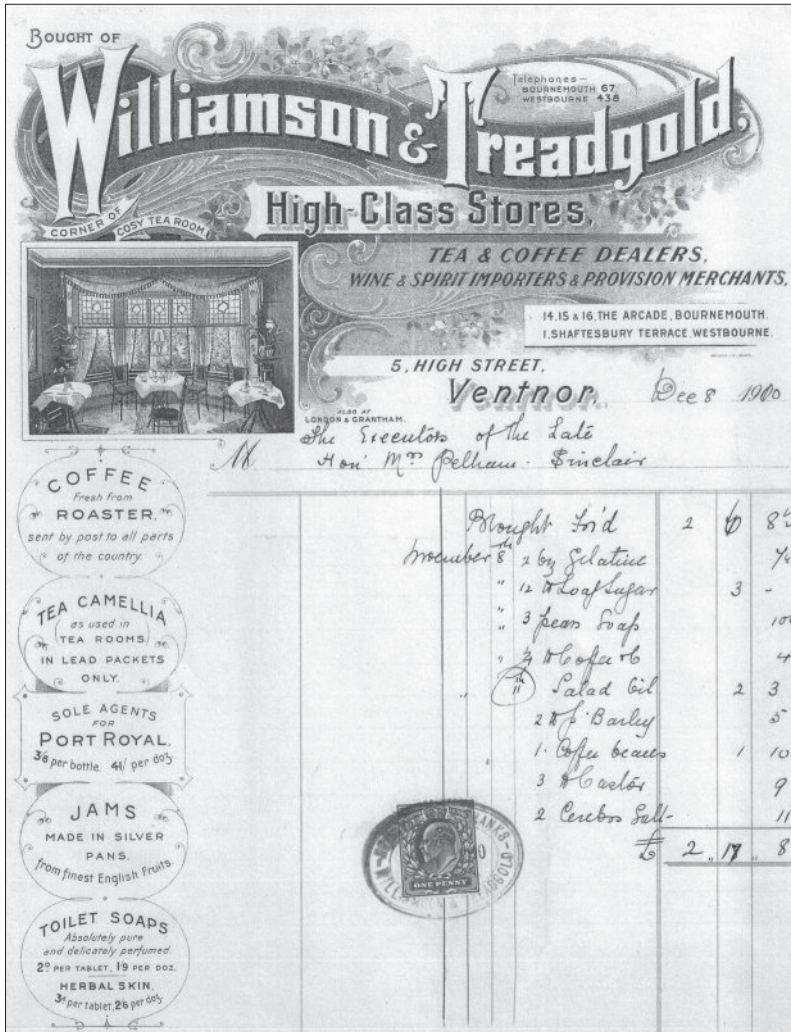 BOUGHT OF
Williamson & Treadgold,
Telephones—
BOURNEMOUTH 67
WESTBOURNE 438
High-Class Stores,
CORNER OF COSY TEA ROOM
TEA & COFFEE DEALERS,
WINE & SPIRIT IMPORTERS & PROVISION MERCHANTS,
14, 15 & 16, THE ARCADE, BOURNEMOUTH.
1, SHAFTESBURY TERRACE, WESTBOURNE.
5, HIGH STREET,
Ventnor, Dec 8 1900
ALSO AT
LONDON & GRANTHAM.
The Executors of the Late
M Hon Mrs Pelham-Sinclair
COFFEE
Fresh from
ROASTER,
sent by post to all parts
of the country.
TEA CAMELLIA
as used in
TEA ROOMS
IN LEAD PACKETS
ONLY.
SOLE AGENTS
FOR
PORT ROYAL.
3/6 per bottle. 41/ per doz.
JAMS
MADE IN SILVER
PANS.
from finest English Fruits.
TOILET SOAPS
Absolutely pure
and delicately perfumed.
2D PER TABLET, 1/9 PER DOZ.
HERBAL SKIN.
3d per tablet, 2/6 per doz.
Brought For'd 2 8
November 8th 2 Gelatine
" 12 lb Loaf Sugar 3 -
" 3 pears Soap 10
" 4
" 11th Salad Oil 2 3
2 lb Barley 5
1 Coffee beans 1 10
3 lb Castor 9
2 Cerebos Salt 11
£ 2 " 17 " 8
ONE PENNY